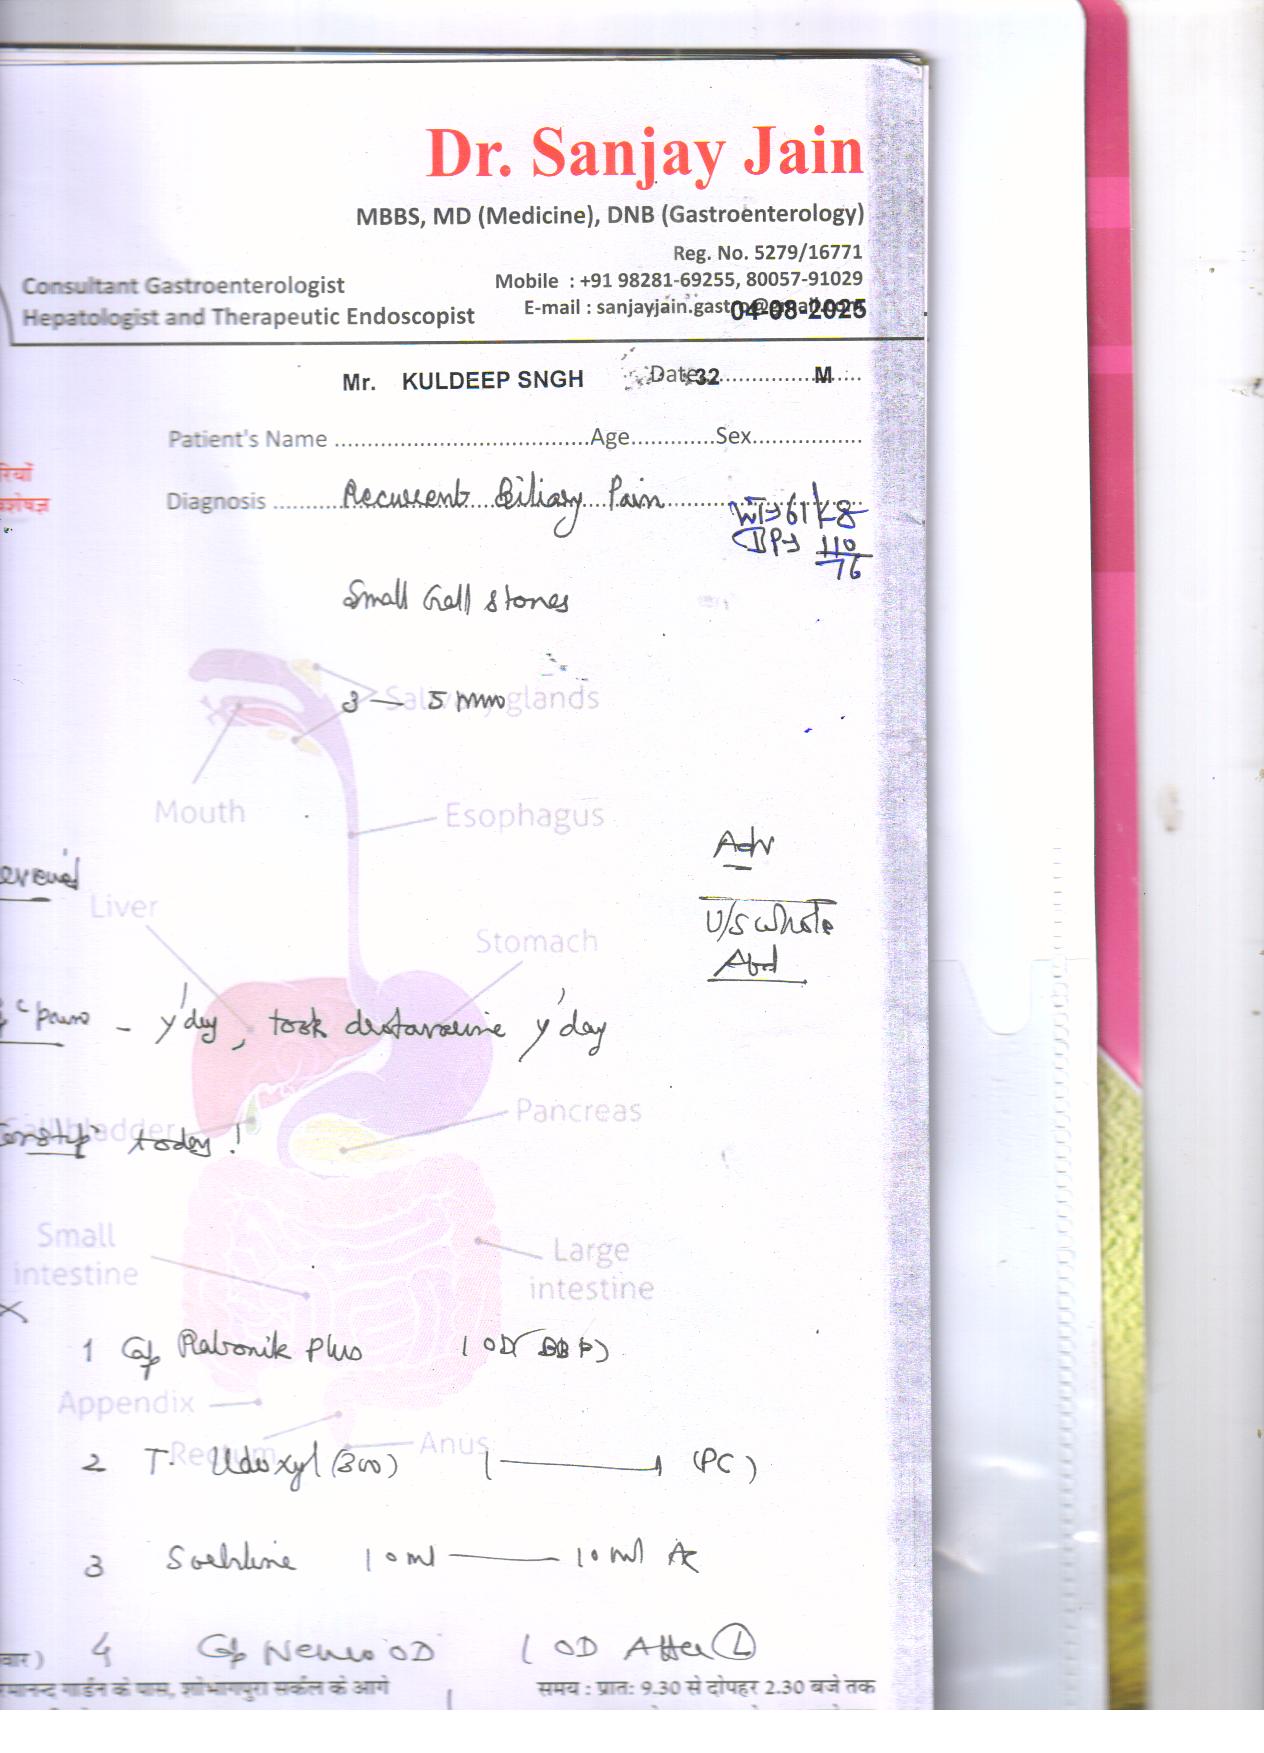 Dr. Sanjay Jain
MBBS, MD (Medicine), DNB (Gastroenterology)
Reg. No. 5279/16771
Consultant Gastroenterologist
Mobile : +91 98281-69255, 80057-91029
Hepatologist and Therapeutic Endoscopist
E-mail : sanjayjain.gastro@gmail.com
04-08-2025
Mr. KULDEEP SNGH Date 32 M
Patient's Name Age Sex
Diagnosis Recurrent Biliary Pain
WT 61 Kg
BP 110/76
Small Gall stones
Salivary glands
3 — 5 mm
Mouth
Esophagus
Adv
Liver
U/S Whole
Abd
Stomach
pain - y'day, took y'day
Pancreas
Gallbladder
today !
Small
intestine
Large
intestine
1 Cap Rabonik Plus 1 OD
Appendix
Rectum
Anus
2 T. Udoxyl (300) 1 — 1 (PC)
3 10 ml — 10 ml
वार ) 4 Cap Neuro OD 1 OD After L
गार्डन के पास, शोभागपुरा सर्कल के आगे
समय : प्रातः 9.30 से दोपहर 2.30 बजे तक